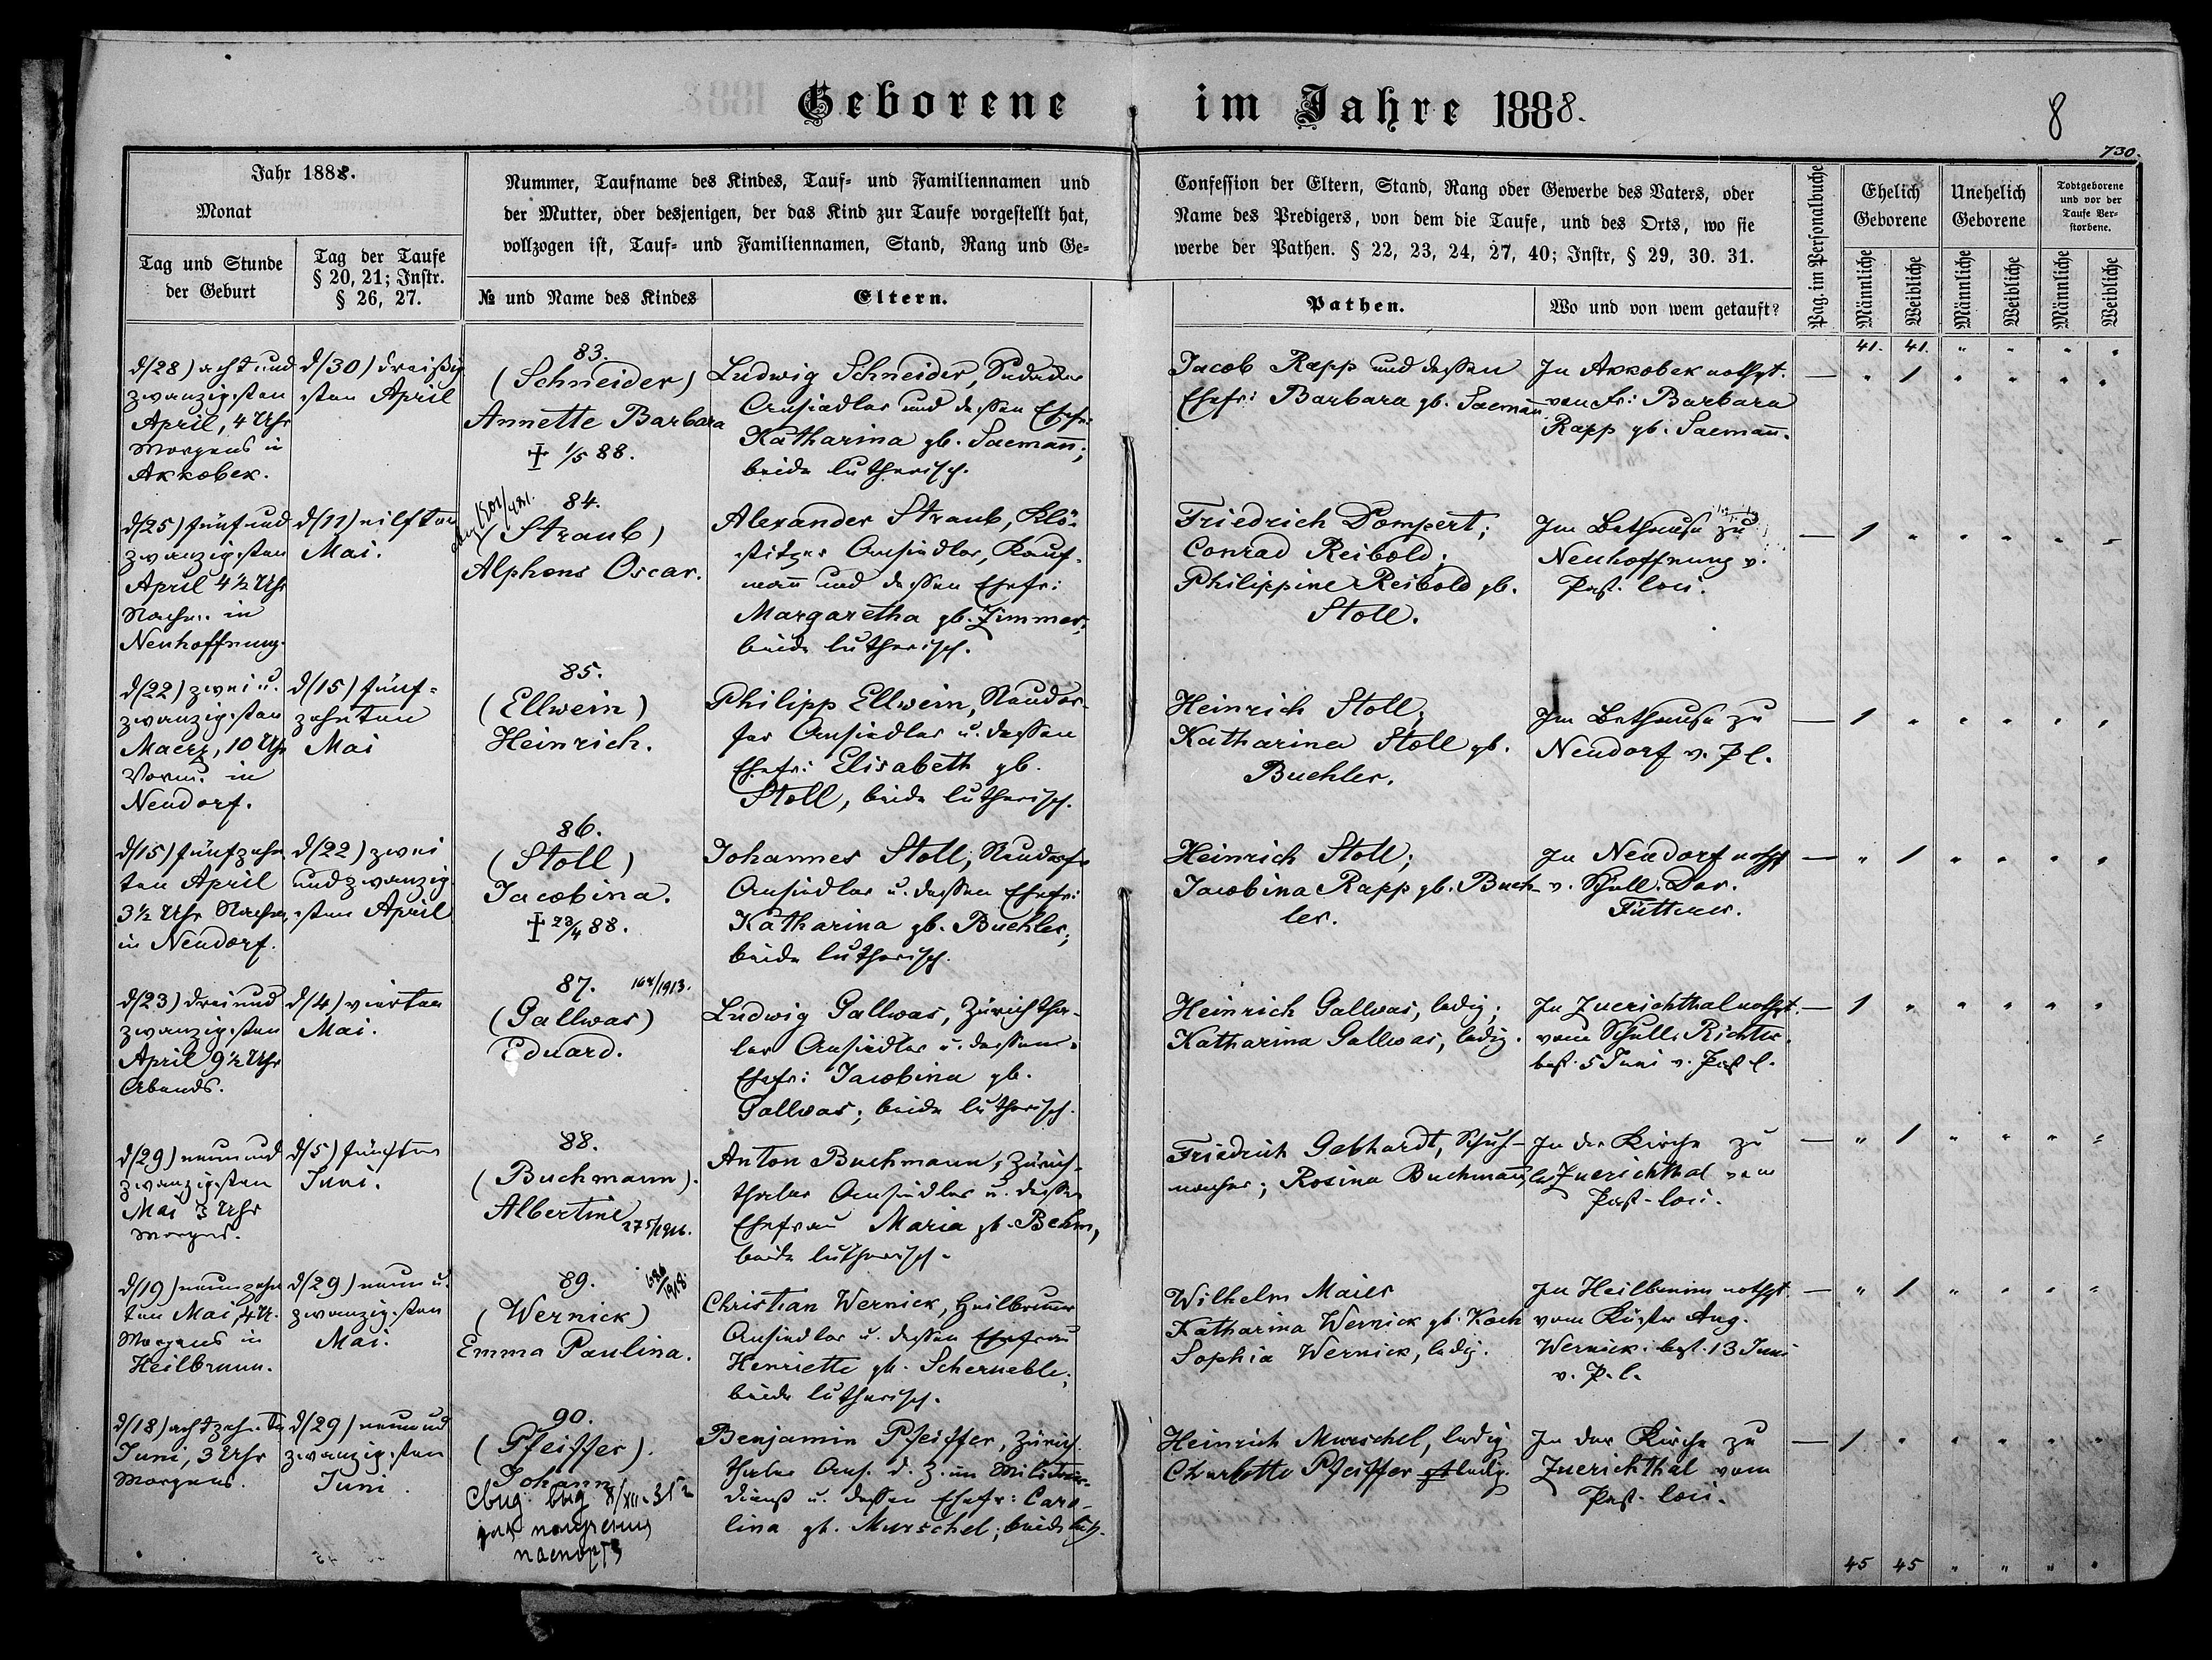 Geborene im Jahre 1888.
8
730.
Jahr 1888.
Monat
Tag und Stunde
der Geburt
Tag der Taufe
§ 20, 21; Instr.
§ 26, 27.
Nummer, Taufname des Kindes, Tauf- und Familiennamen und
der Mutter, oder desjenigen, der das Kind zur Taufe vorgestellt hat,
vollzogen ist, Tauf- und Familiennamen, Stand, Rang und Ge-
№ und Name des Kindes
Eltern.
Confession der Eltern, Stand, Rang oder Gewerbe des Vaters, oder
Name des Predigers, von dem die Taufe, und des Orts, wo sie
werbe der Pathen. § 22, 23, 24, 27, 40; Instr, § 29, 30. 31.
Pathen.
Wo und von wem getauft?
Pag. im Personalbuche
Ehelich
Geborene
Unehelich
Geborene
Todtgeborene
und vor der
Taufe Ver-
storbene.
Männliche
Weibliche
Männliche
Weibliche
Männliche
Weibliche
41. 41. " " " "
d/28) acht und
zwanzigsten
April, 4 Uhr
Morgens in
Akkobek.
d/30) dreißig
sten April
83.
(Schneider)
Annette Barbara
✝ 1/5 88.
Ludwig Schneider,
Ansiedler und dessen Ehefr:
Katharina gb. Saemañ;
beide lutherisch.
Jacob Rapp und dessen
Ehefr: Barbara gb. Saemañ.
In Akkobek nothgt.
von Fr: Barbara
Rapp gb. Saemañ.
— " 1 " " " "
d/25) fünf und
zwanzigsten
April 4½ Uhr
Nachm. in
Neuhoffnung.
d/11) eilften
Mai.
84.
(Straub)
Alphons Oscar.
Alexander Straub, Klö-
stitzer Ansiedler, Kauf-
mañ und dessen Ehefr:
Margaretha gb. Zimmer;
beide lutherisch.
Friedrich Dompert;
Conrad Reibold;
Philippine Reibold gb.
Stoll.
Im Bethause zu
Neuhoffnung v.
Past. loci.
— 1 " " " " "
d/22) zwei u.
zwanzigsten
Maerz, 10 Uhr
Vorm. in
Neudorf.
d/15) fünf-
zehnten
Mai
85.
(Ellwein)
Heinrich.
Philipp Ellwein, Neudor-
fer Ansiedler u. dessen
Ehefr: Elisabeth gb.
Stoll, beide lutherisch.
Heinrich Stoll;
Katharina Stoll gb.
Buehler.
Im Bethause zu
Neudorf v. P. l.
— 1 " " " " "
d/15) fünfzehn
ten April
3½ Uhr Nachm.
in Neudorf.
d/22) zwei
und zwanzig
sten April
86.
(Stoll)
Jacobina.
✝ 23/4 88.
Johannes Stoll, Neudorfer
Ansiedler u. dessen Ehefr:
Katharina gb. Buehler;
beide lutherisch.
Heinrich Stoll;
Jacobina Rapp gb. Bueh-
ler.
In Neudorf nothgt
v. Schull. Dav.
Fütterer.
— " 1 " " " "
d/23) drei und
zwanzigsten
April 9½ Uhr
Abends.
d/4) vierten
Mai.
87. 164/1913.
(Gallwas)
Eduard.
Ludwig Gallwas, Zürichtha-
ler Ansiedler u. dessen
Ehefr: Jacobina gb.
Gallwas; beide lutherisch.
Heinrich Gallwas, ledig;
Katharina Gallwas, ledig.
In Zuerichthal nothgt.
vom Schull. Richter.
best. 5 Juni v. Past. l.
— 1 " " " " "
d/29) neun und
zwanzigsten
Mai 3 Uhr
Morgens.
d/5) fünften
Juni.
88.
(Buchmann).
Albertine
275/1916.
Anton Buchmann, Zürich-
thaler Ansiedler u. dessen
Ehefrau Maria gb. Behm,
beide lutherisch.
Friedrich Gebhardt, Schuh-
macher; Rosina Buchmañ,
In der Kirche zu
Zuerichthal vom
Past. loci.
— " 1 " " " "
d/19) neunzehn
ten Mai, 4 U.
Morgens in
Heilbrunn.
d/29) neun u.
zwanzigsten
Mai.
89.
(Wernick)
Emma Paulina.
Christian Wernick, Heilbrunner
Ansiedler u. dessen Ehefrau
Henriette gb. Scherueble;
beide lutherisch.
Wilhelm Maier
Katharina Wernick gb. Koch
Sophia Wernick, ledig.
In Heilbrunn nothgt
vom Küster Aug.
Wernick. best. 13 Juni
v. P. l.
— " 1 " " " "
d/18) achtzehnten
Juni, 3 Uhr
Morgens.
d/29) neun und
zwanzigsten
Juni.
90.
(Pfeiffer).
Johann
Benjamin Pfeiffer, Zürich-
thaler Ans. d. Z. im Militär-
dienst u. dessen Ehefr: Caro-
lina gb. Murschel; beide luth.
Heinrich Murschel, ledig
Charlotte Pfeiffer ledig.
In der Kirche zu
Zuerichthal vom
Past. loci.
— 1 " " " " "
45 45 " " " "